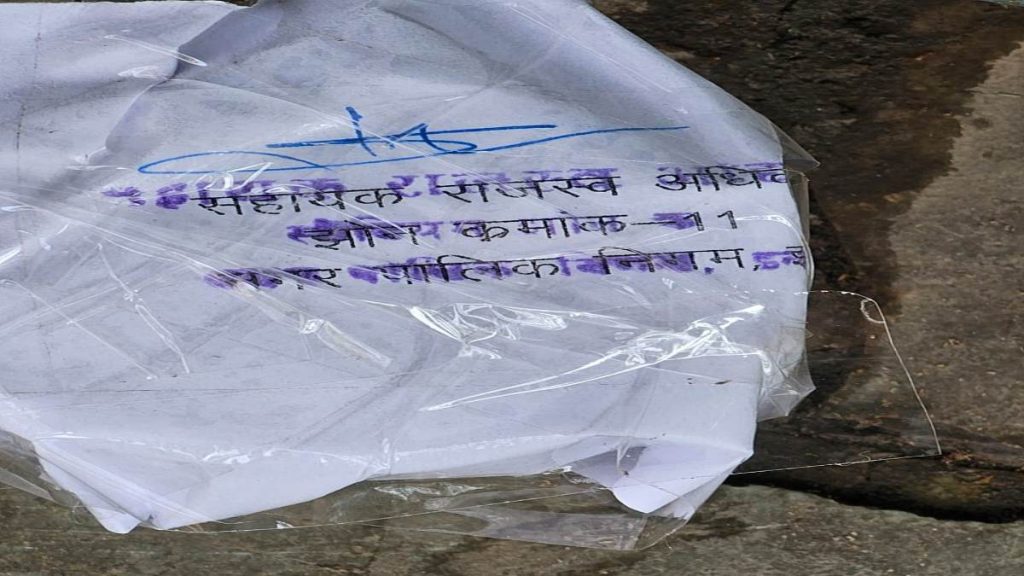 सहायक राजस्व अधिक
झोन कमांक-11
नगर पालिक निगम,